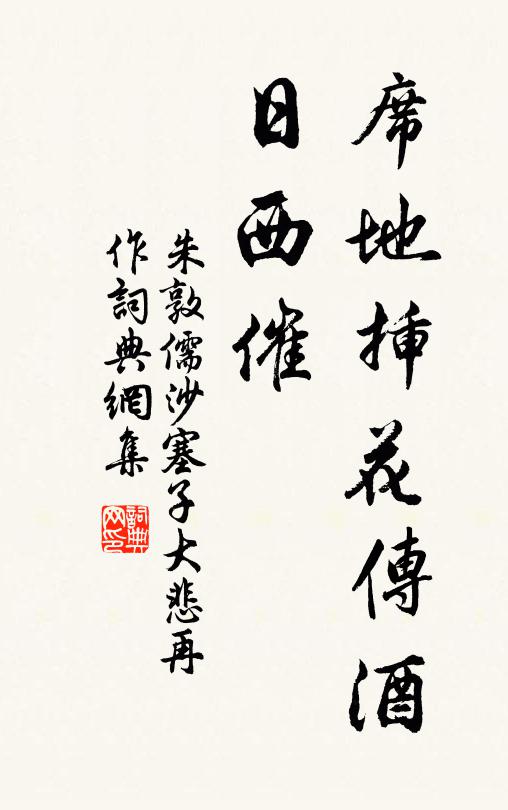 席地挿花傳酒
日西催
朱敦儒沙塞子大悲再
作詞典網集
詞典
网印